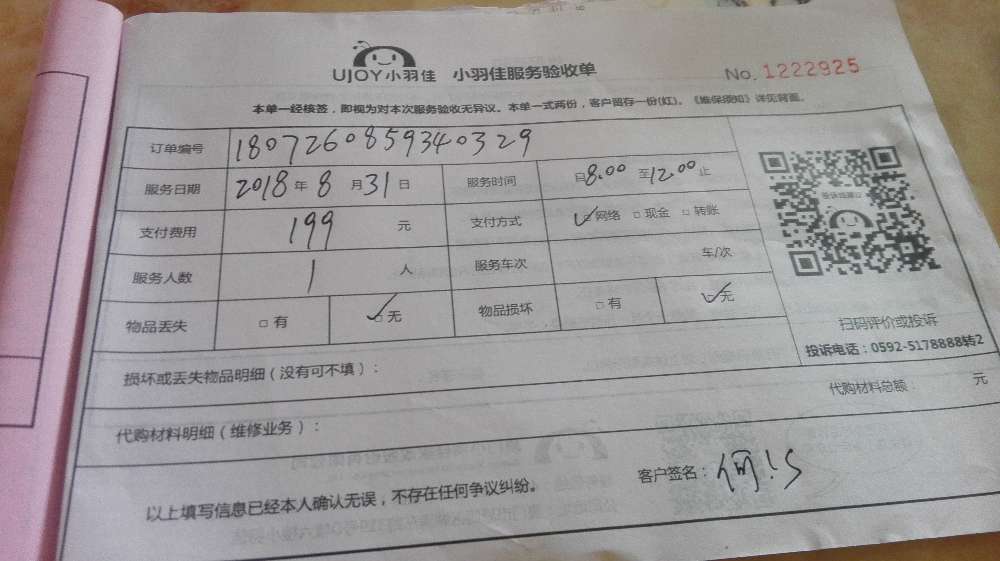 UJOY小羽佳 小羽佳服务验收单 No.1222925
本单一经核签，即视为对本次服务验收无异议。本单一式两份，客户留存一份(红)。《维保须知》详见背面。
订单编号 180726085934 0329
服务日期 2018年8月31日 服务时间 自8:00至12:00止
支付费用 199 元 支付方式 ☑网络 □现金 □转账
服务人数 1 人 服务车次 车/次
物品丢失 □有 ☑无 物品损坏 □有 ☑无
扫码评价或投诉
投诉电话：0592-5178888转2
损坏或丢失物品明细（没有可不填）：
代购材料明细（维修业务）： 代购材料总额： 元
以上填写信息已经本人确认无误，不存在任何争议纠纷。 客户签名：何